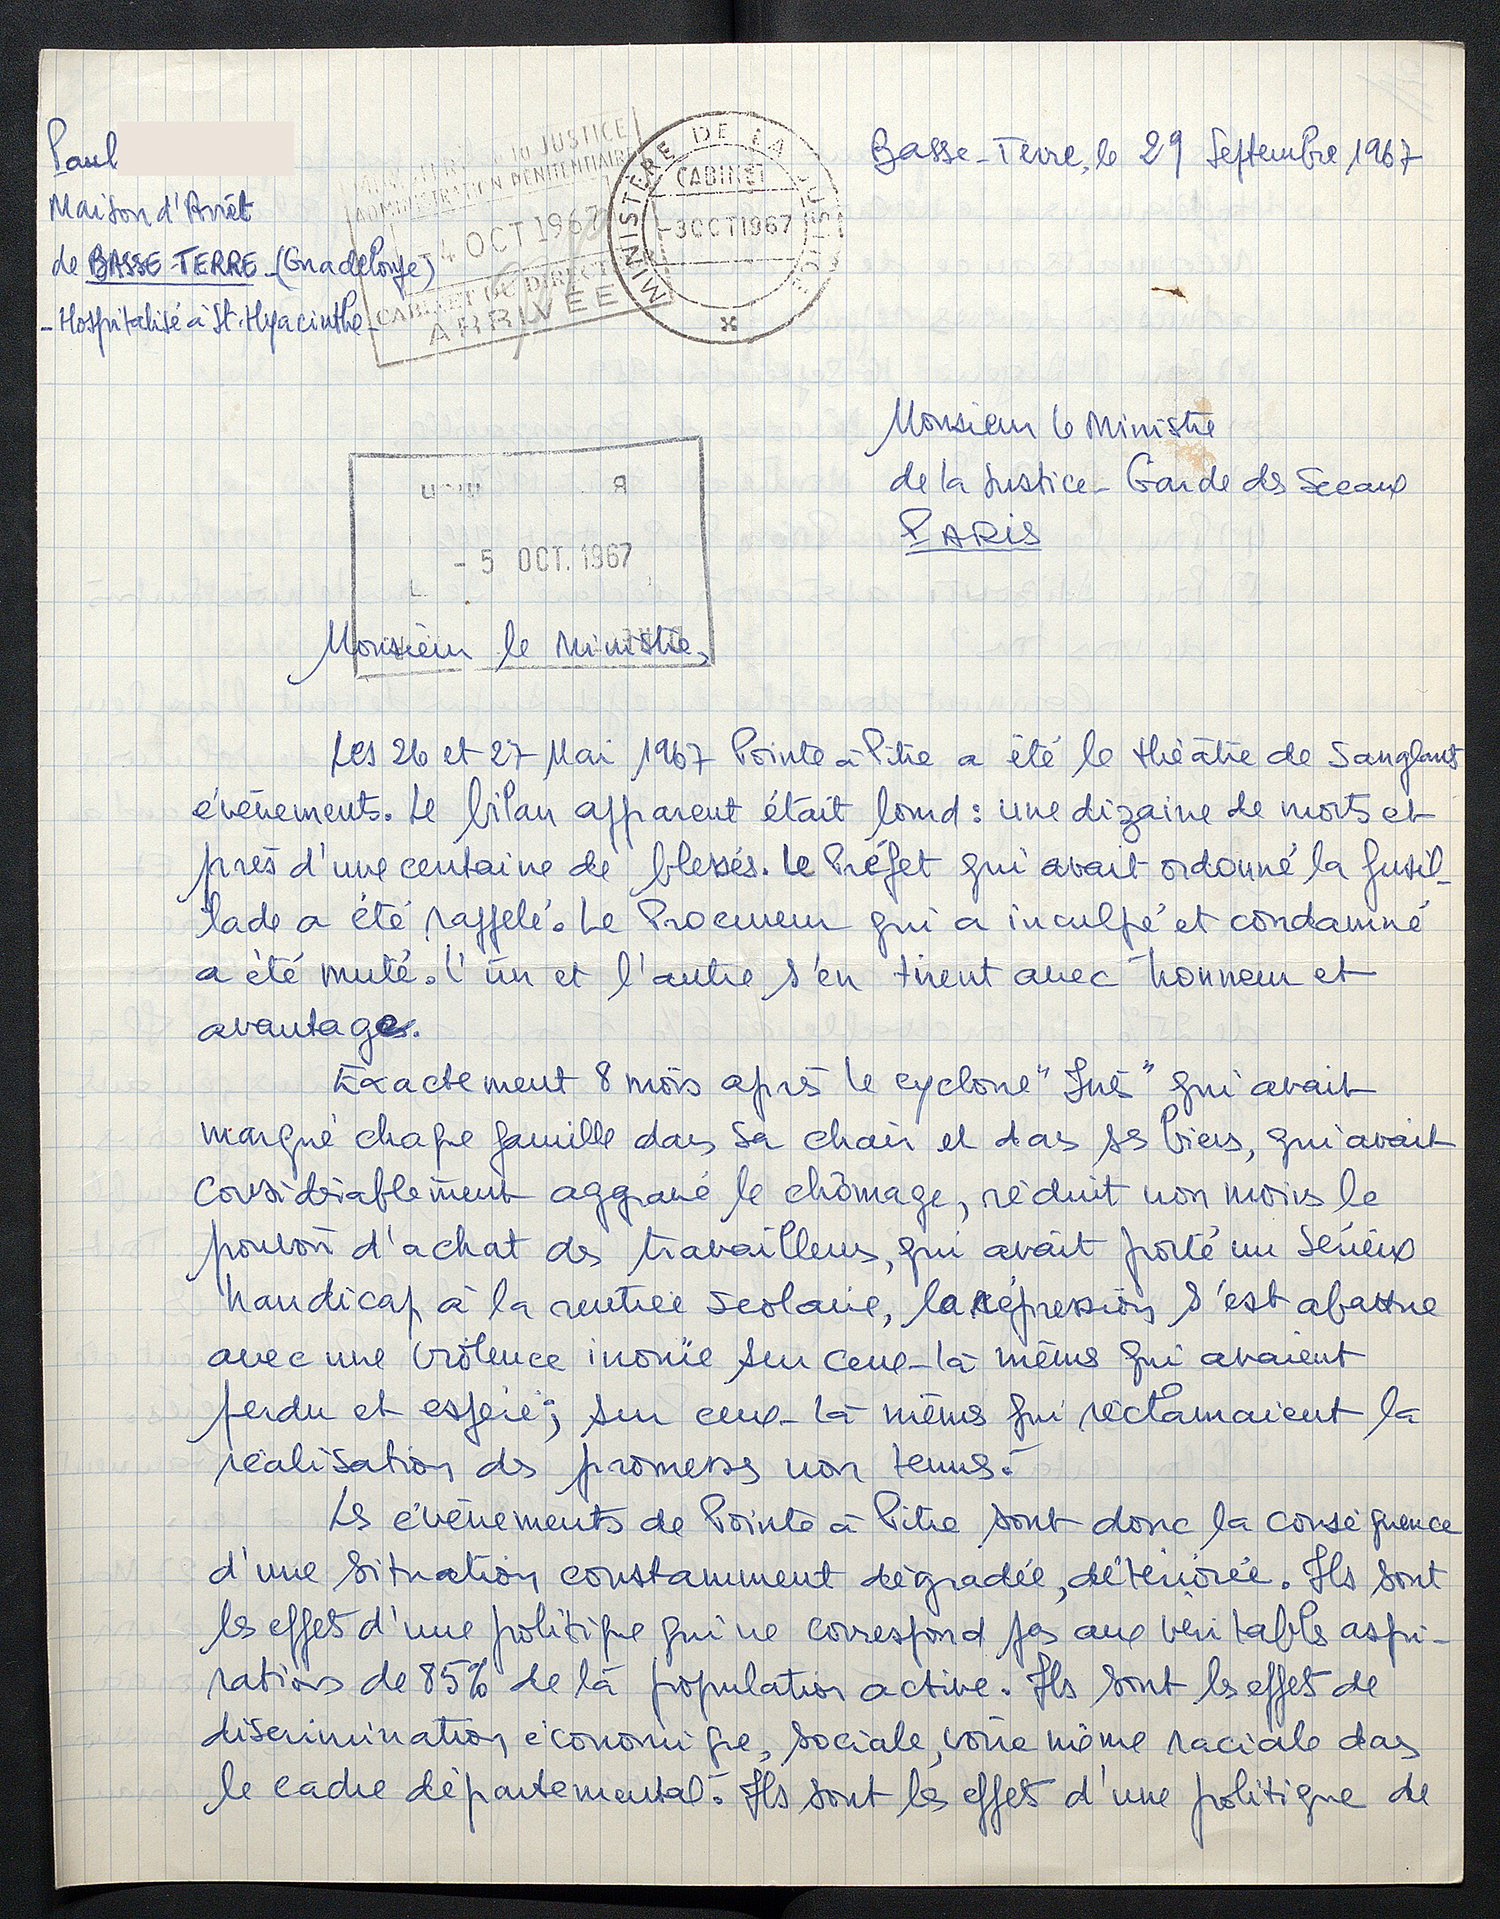 Paul
Maison d'Arrêt
de BASSE-TERRE - (Guadeloupe)
- Hospitalisé à St-Hyacinthe -
JUSTICE
ADMINISTRATION PÉNITENTIAIRE
4 OCT 1967
CABINET DU DIRECTEUR
ARRIVÉE
MINISTÈRE DE LA JUSTICE
CABINET
-3 OCT 1967
Basse-Terre, le 29 Septembre 1967
Monsieur le Ministre
de la Justice - Garde des Sceaux
PARIS
- 5 OCT. 1967
Monsieur le Ministre,
Les 26 et 27 Mai 1967 Pointe à Pitre a été le théâtre de Sanglants
évènements. Le bilan apparent était lourd : une dizaine de morts et
près d'une centaine de blessés. Le Préfet qui avait ordonné la fusil-
lade a été rappelé. Le Procureur qui a inculpé et condamné
a été muté. L'un et l'autre s'en tirent avec honneur et
avantage.
Exactement 8 mois après le cyclone "Inès" qui avait
marqué chaque famille dans sa chair et dans ses biens, qui avait
considérablement aggravé le chômage, réduit non moins le
pouvoir d'achat des travailleurs, qui avait porté un sérieux
handicap à la rentrée scolaire, la répression s'est abattue
avec une violence inouïe sur ceux-là mêmes qui avaient
perdu et espéré ; sur ceux-là mêmes qui réclamaient la
réalisation des promesses non tenues.
Les évènements de Pointe à Pitre sont donc la conséquence
d'une situation constamment dégradée, détériorée. Ils sont
les effets d'une politique qui ne correspond pas aux véritables aspi-
rations de 85% de la population active. Ils sont les effets de
discrimination économique, sociale, voire même raciale dans
le cadre départemental. Ils sont les effets d'une politique de